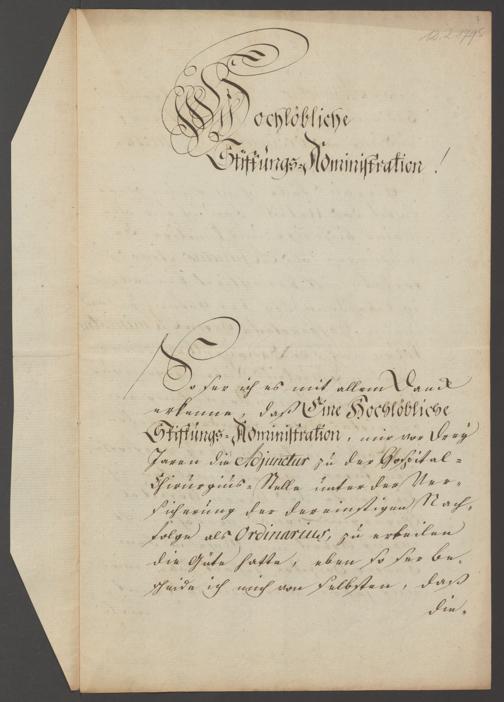 12.2.1798
Hochlöbliche
Stiftungs-Administration!
So ser ich es mit allem Danck
erkenne, daß Eine Hochlöbliche
Stiftungs-Administration, mir vor drey
Jaren die Adjunctur zu der Hospital-
Chirurgius-Stelle unter der Ver-
sicherung der dereinstigen Nach-
folge als Ordinarius, zu erteilen
die Güte hatte, eben so ser be-
scheide ich mich von selbsten, daß
die-